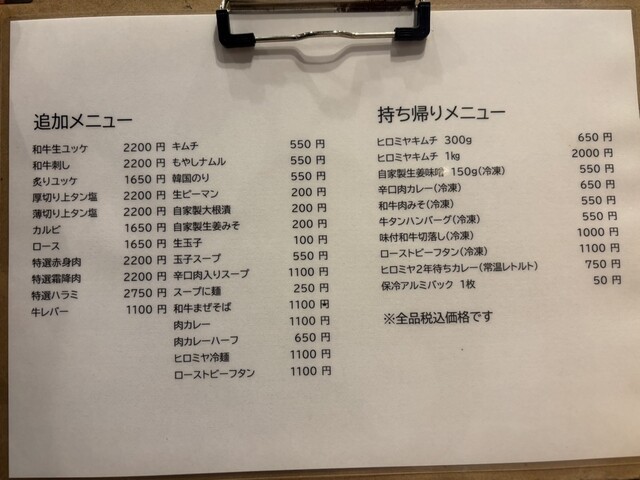 追加メニュー
和牛生ユッケ 2200 円
和牛刺し 2200 円
炙りユッケ 1650 円
厚切り上タン塩 2200 円
薄切り上タン塩 2200 円
カルビ 1650 円
ロース 1650 円
特選赤身肉 2200 円
特選霜降肉 2200 円
特選ハラミ 2750 円
牛レバー 1100 円
キムチ 550 円
もやしナムル 550 円
韓国のり 550 円
生ピーマン 200 円
自家製大根漬 200 円
自家製生姜みそ 200 円
生玉子 100 円
玉子スープ 550 円
辛口肉入りスープ 1100 円
スープに麺 250 円
和牛まぜそば 1100 円
肉カレー 1100 円
肉カレーハーフ 650 円
ヒロミヤ冷麺 1100 円
ローストビーフタン 1100 円
持ち帰りメニュー
ヒロミヤキムチ 300g 650 円
ヒロミヤキムチ 1kg 2000 円
自家製生姜味噌 150g(冷凍) 550 円
辛口肉カレー(冷凍) 650 円
和牛肉みそ(冷凍) 550 円
牛タンハンバーグ(冷凍) 550 円
味付和牛切落し(冷凍) 1000 円
ローストビーフタン(冷凍) 1100 円
ヒロミヤ2年待ちカレー(常温レトルト) 750 円
保冷アルミパック 1枚 50 円
※全品税込価格です